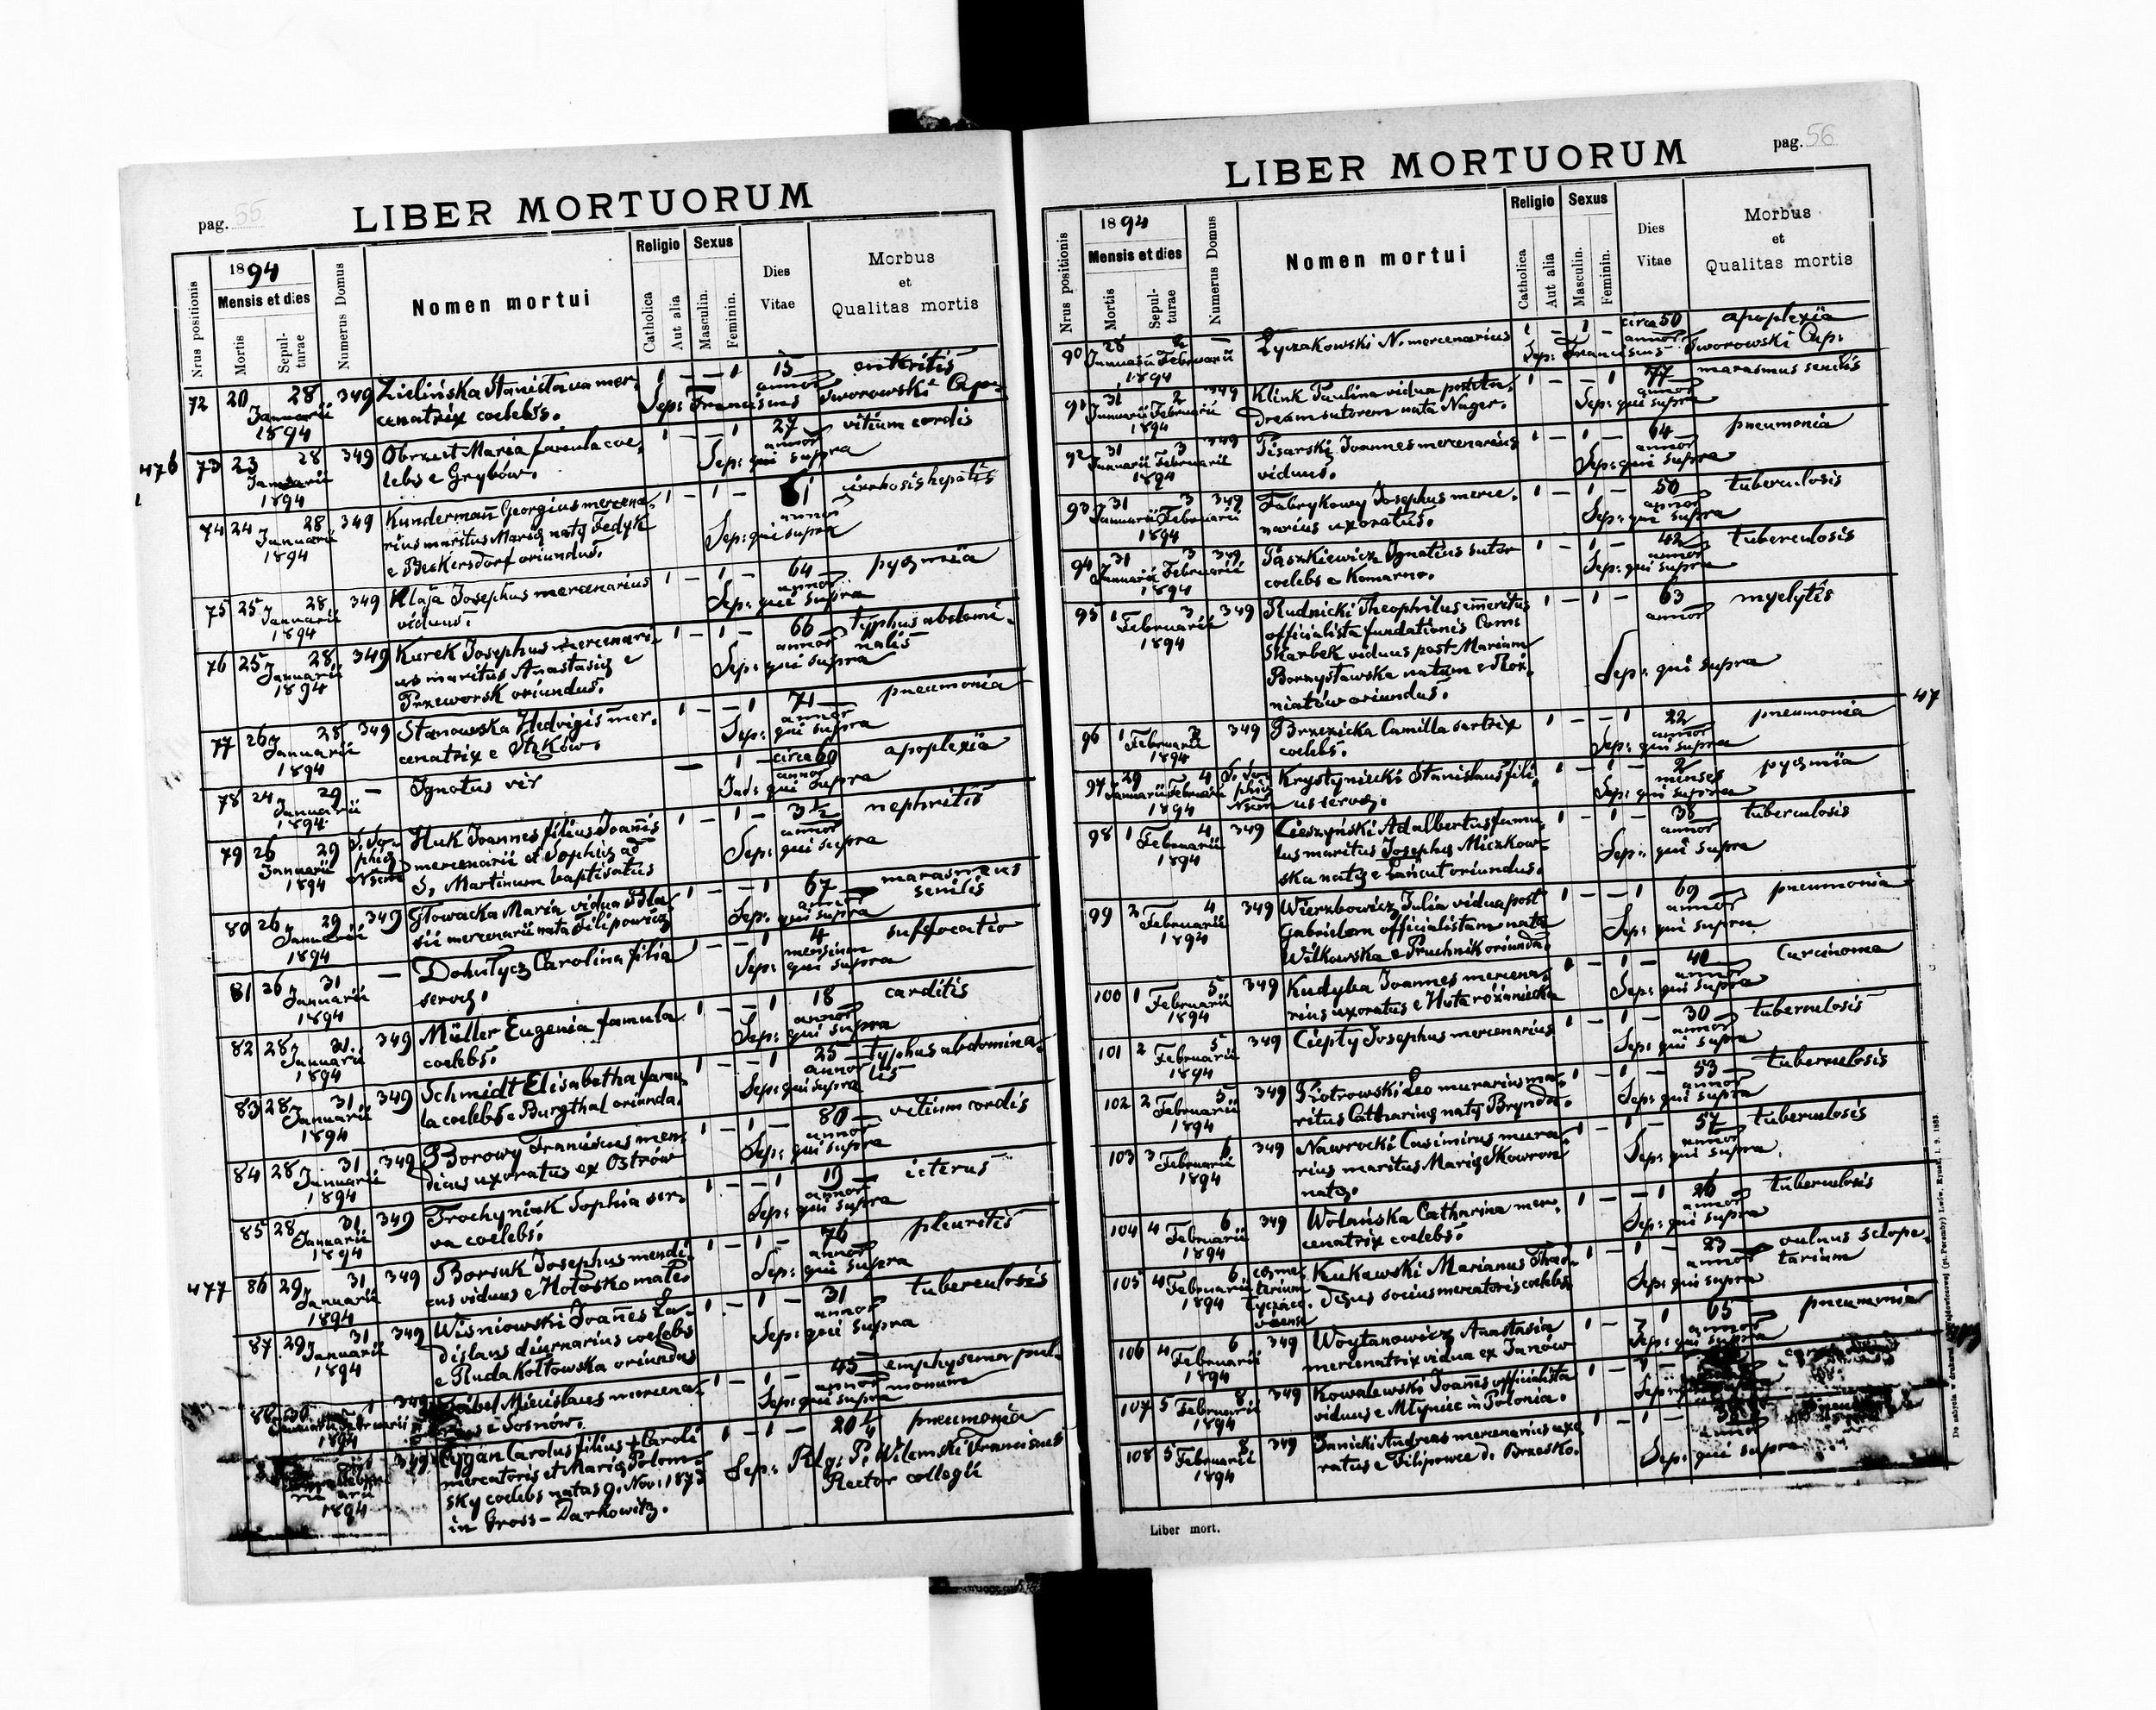 pag. 55
LIBER MORTUORUM
Nrus positionis
1894
Mensis et dies
Mortis
Sepul-
turae
Numerus Domus
Nomen mortui
Religio
Catholica
Aut alia
Sexus
Masculin.
Feminin.
Dies
Vitae
Morbus
et
Qualitas mortis
72 20 28 349 Zielińska Stanisława mer- 1 — — 1 15 enteritis
Januarii cenatrix coelebs. annor Sep: Franciscus Tworowski Cap.
1894
476 73 23 28 349 Obrzut Maria famula coe- 1 — — 1 27 vitium cordis
Januarii lebs e Grybów. annor Sep: qui supra
1894
74 24 28 349 Kundermañ Georgius mercena- 1 — 1 — 61 cirrhosis hepatis
Januarii rius maritus Marię natę Fedyk annor
1894 e Beckersdorf oriundus. Sep: qui supra
75 25 28 349 Klaja Josephus mercenarius 1 — 1 — 64 pyęmia
Januarii viduus. annor Sep: qui supra
1894
76 25 28 349 Kurek Josephus mercenari- 1 — 1 — 66 typhus abdomi-
Januarii us maritus Anastasię e annor nalis
1894 Przeworsk oriundus. Sep: qui supra
77 26 28 349 Stanowska Hedvigis mer- 1 — — 1 71 pneumonia
Januarii cenatrix e annor Sep: qui supra
1894
78 24 29 — Ignotus vir — 1 — circa 60 apoplexia
Januarii annor qui supra
1894
79 26 29 S. So- Huk Joannes filius Joañis 1 — 1 — 3½ nephritis
Januarii phię mercenarii et Sophię ad annor
1894 S. Martinum baptisatus Sep: qui supra
80 26 29 349 Głowacka Maria vidua Bla- 1 — — 1 67 marasmus
Januarii sii mercenarii nata Filipowicz annor senilis
1894 Sep: qui supra
81 26 31 — Carolina filia — 1 4 suffocatio
Januarii servę. mensium
1894 Sep: qui supra
82 28 31 349 Müller Eugenia famula 1 — — 1 18 carditis
Januarii coelebs. annor
1894 Sep: qui supra
83 28 31 349 Schmidt Elisabetha famu- 1 — — 1 25 typhus abdomina-
Januarii la coelebs e Burgthal oriunda. annor lis
1894 Sep: qui supra
84 28 31 349 Borowy Franciscus men- 1 — 1 — 80 vitium cordis
Januarii dicus uxoratus ex Ostrów annor
1894 Sep: qui supra
85 28 31 349 Trochyniuk Sophia ser- 1 — — 1 19 icterus
Januarii va coelebs. annor
1894 Sep: qui supra
477 86 29 31 349 Borsuk Josephus mendi- 1 — 1 — 76 pleuritis
Januarii cus viduus e Hołosko annor
1894 Sep: qui supra
87 29 31 349 Wiśniowski Joañes La- 1 — 1 — 31 tuberculosis
Januarii dislaus diurnarius coelebs annor
1894 e Ruda Kołtowska oriundus Sep: qui supra
88 30 1 349 Miecislaus mercena- 1 — 1 — 45 emphysema pul-
e Sosnów. annor monum
1894 Sep: qui supra
349 Cygan Carolus filius + Caroli 1 — 1 — 20 ¼ pneumonia
mercatoris et Marię Polom-
sky coelebs natus 9. Nov. 1873 Sep: P. Wilemski Franciscus
1894 in Gross-Darkowitz. Rector collegii
pag. 56
LIBER MORTUORUM
Nrus positionis
1894
Mensis et dies
Mortis
Sepul-
turae
Numerus Domus
Nomen mortui
Religio
Catholica
Aut alia
Sexus
Masculin.
Feminin.
Dies
Vitae
Morbus
et
Qualitas mortis
90 28 2 — Łyczakowski N. mercenarius 1 — 1 — circa 50 apoplexia
Januarii Februarii annor
1894 Sep: Franciscus Tworowski Cap.
91 31 2 349 Klink Paulina vidua post 1 — — 1 77 marasmus senilis
Januarii Februarii sutorem nata Nager. annor
1894 Sep: qui supra
92 31 3 349 Pisarski Joannes mercenarius 1 — 1 — 64 pneumonia
Januarii Februarii viduus. annor
1894 Sep: qui supra
93 31 3 349 Fabrykowy Josephus merce- 1 — 1 — 50 tuberculosis
Januarii Februarii narius uxoratus. annor
1894 Sep: qui supra
94 31 3 349 Paszkiewicz Ignatius sutor 1 — 1 — 42 tuberculosis
Januarii Februarii coelebs e Komarno. annor
1894 Sep: qui supra
95 1 3 349 Rudnicki Theophilus emeritus 1 — 1 — 63 myelytis
Februarii officialista fundationis Com. annor
1894 Skarbek viduus post Mariam
natam e Roż-
niatów oriundus. Sep: qui supra
47
96 1 3 349 Brzezicka Camilla sartrix 1 — — 1 22 pneumonia
Februarii coelebs. annor
1894 Sep: qui supra
97 29 4 S. So- Krystyniecki Stanislaus fili- 1 — 1 — 2 pyęmia
Januarii Februarii phię us servę. menses
1894 Sep: qui supra
98 1 4 349 Cieszyński Adalbertus famu- 1 — 1 — 38 tuberculosis
Februarii lus maritus Josephę Miczkow- annor
1894 ska natę e Łańcut oriundus. Sep: qui supra
99 2 4 349 Wierzbowicz Julia vidua post 1 — — 1 69 pneumonia
Februarii Gabrielem officialistam nata annor
1894 Wilkowska e Pruchnik oriunda. Sep: qui supra
100 1 5 349 Kudyba Joannes mercena- 1 — 1 — 40 Carcinoma
Februarii rius uxoratus e Huta różaniecka annor
1894 Sep: qui supra
101 2 5 349 Ciepły Josephus mercenarius 1 — 1 — 30 tuberculosis
Februarii annor
1894 Sep: qui supra
102 2 5 349 Piotrowski Leo murarius ma- 1 — 1 — 53 tuberculosis
Februarii ritus Catharinę natę Brynda. annor
1894 Sep: qui supra
103 3 6 349 Nawrocki Casimirus mura- 1 — 1 — 57 tuberculosis
Februarii rius maritus Marię Skowron annor
1894 natę. Sep: qui supra
104 4 6 349 Wolańska Catharina mer- 1 — — 1 26 tuberculosis
Februarii cenatrix coelebs. annor
1894 Sep: qui supra
105 4 6 coeme- Kukawski Marianus Thad- 1 — 1 — 23 vulnus sclope-
Februarii terium dęus socius mercatoris coelebs. annor tarium
1894 Łyczaco- viense Sep: qui supra
106 4 6 349 Woytanowicz Anastasia 1 — — 1 65 pneumonia
Februarii mercenatrix vidua ex Janów annor
1894 Sep: qui supra
107 5 8 349 Kowalewski Joañes officialista 1 —
Februarii viduus e Młyniec in Polonia.
1894
108 5 8 349 Janicki Andreas mercenarius uxo- 1 — 1 —
Februarii ratus e Filipowce d. Brzesko.
1894 Sep: qui supra
Liber mort.